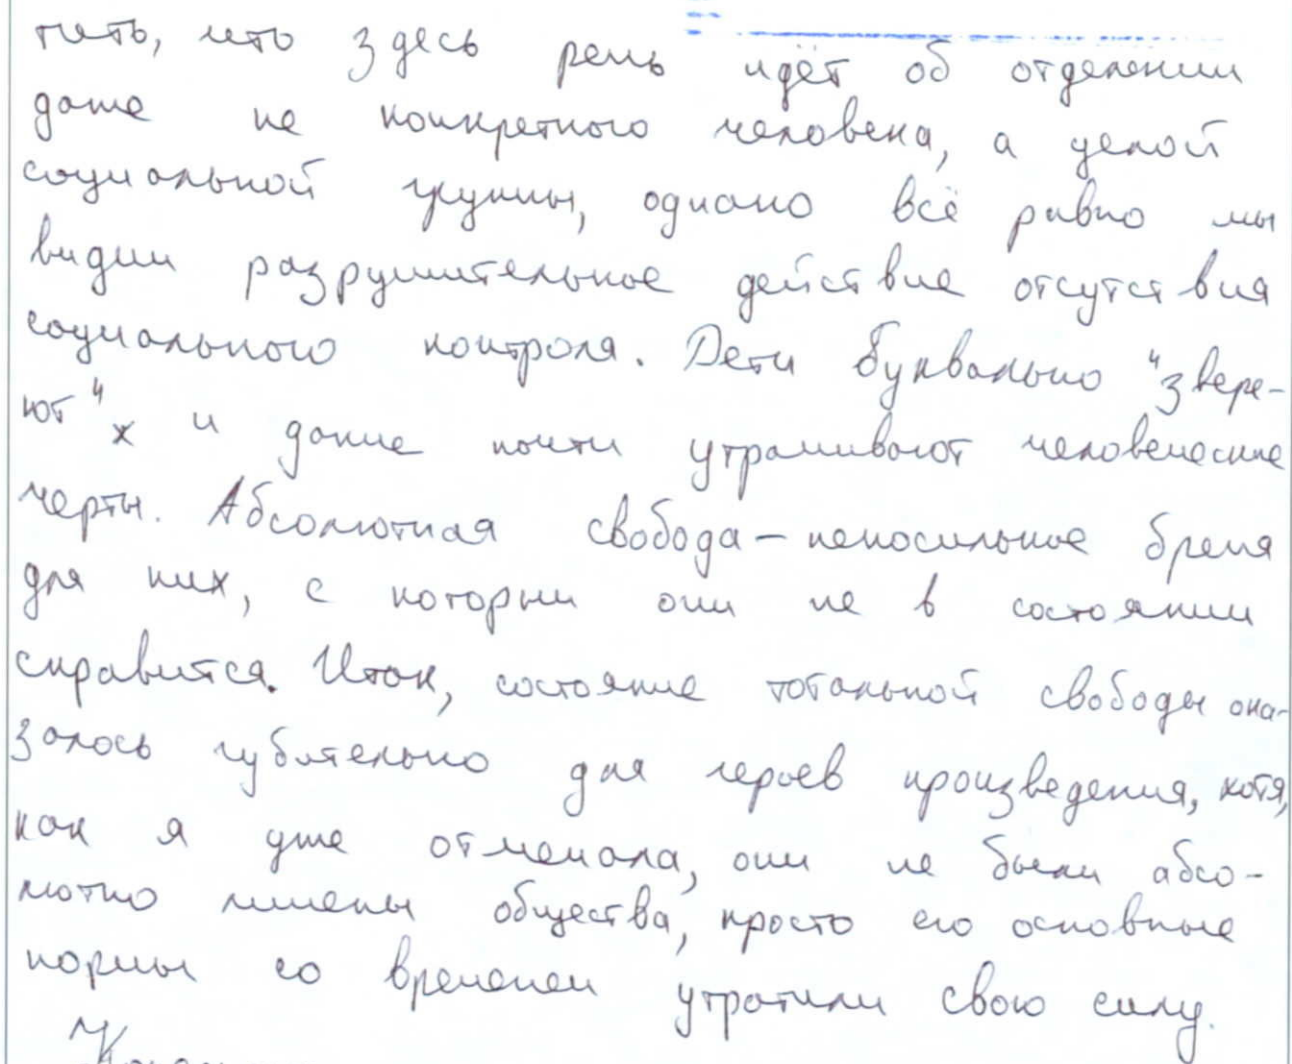 тить, что здесь речь идёт об отделении
даже не конкретного человека, а целой
социальной группы, однако всё равно мы
видим разрушительное действие отсутствия
социального контроля. Дети буквально "звере-
ют" х и даже почти утрачивают человеческие
черты. Абсолютная свобода – непосильное бремя
для них, с которым они не в состоянии
справится. Итак, состояние тотальной свободы ока-
залось губительно для героев произведения, хотя,
как я уже отмечала, они не были абсо-
лютно лишены общества, просто его основные
нормы со временем утратили свою силу.